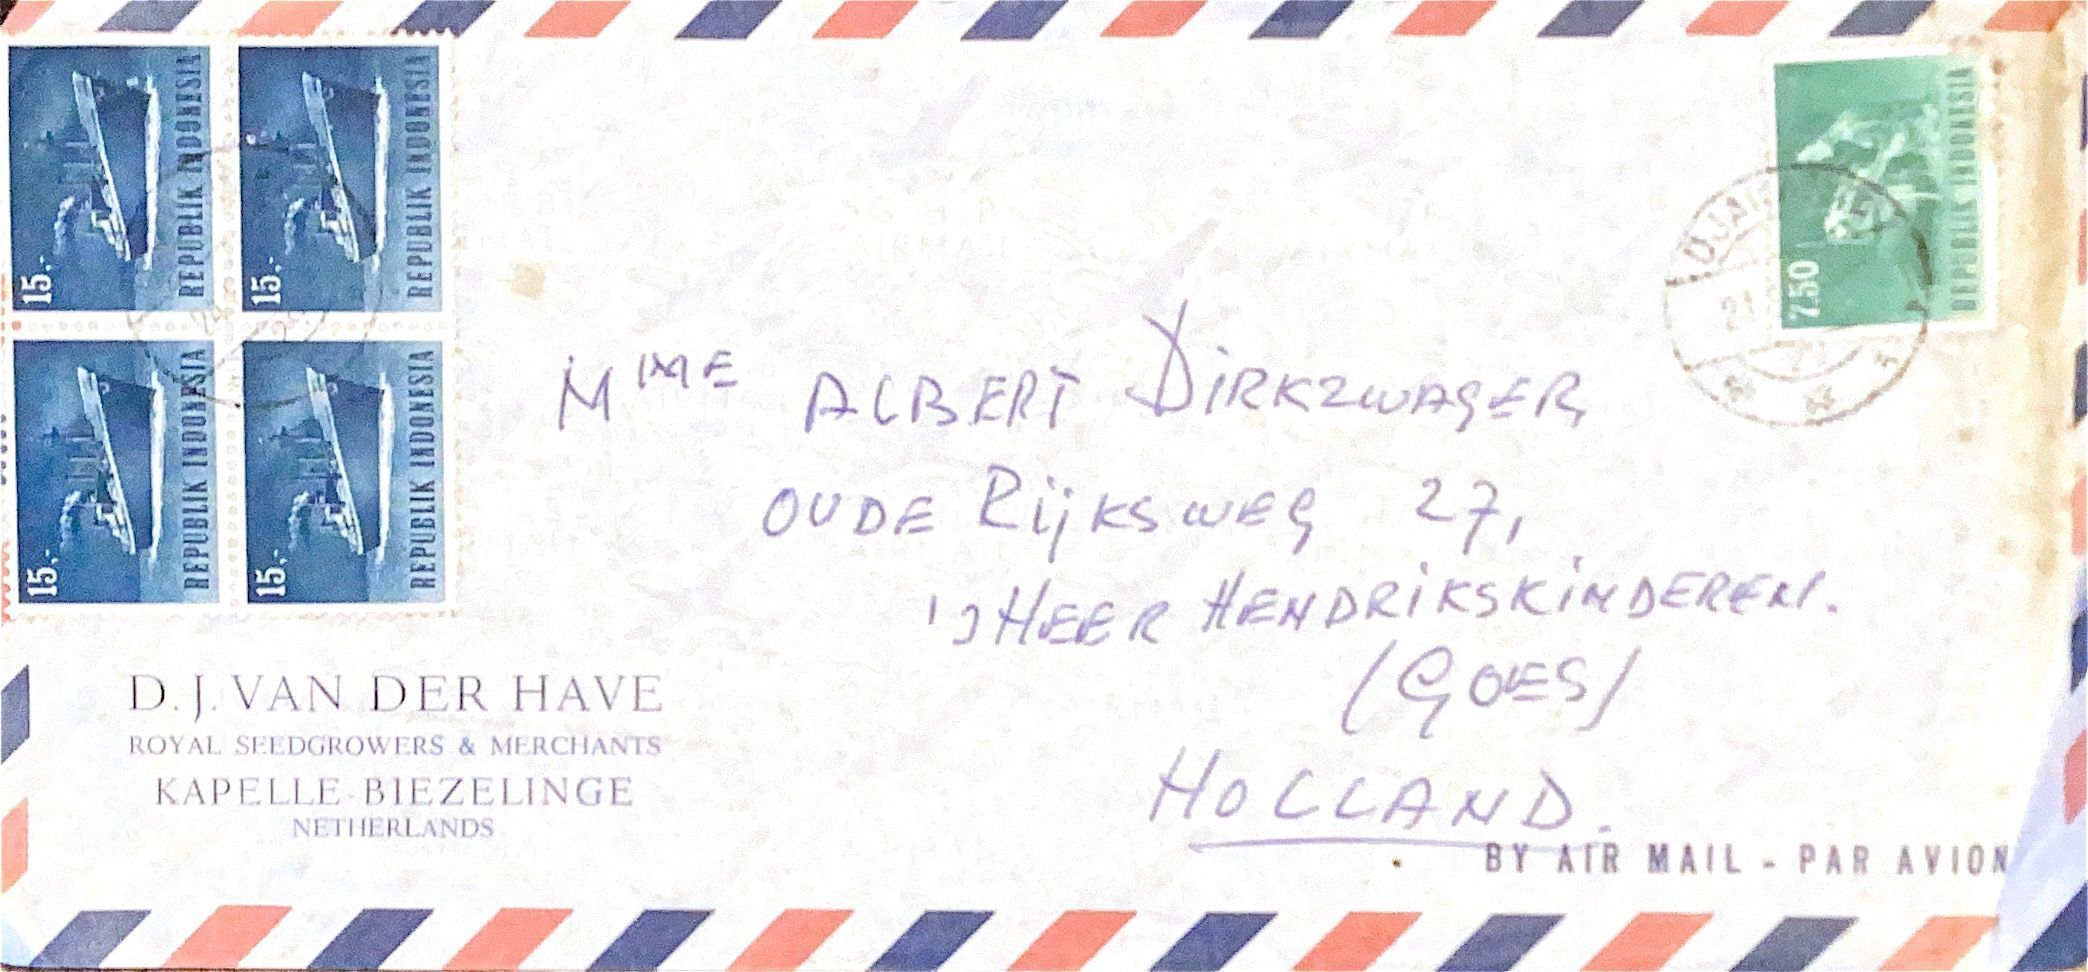 15,-
REPUBLIK INDONESIA
15,-
REPUBLIK INDONESIA
15,-
REPUBLIK INDONESIA
15,-
REPUBLIK INDONESIA
7.50
REPUBLIK INDONESIA
MME ALBERT DIRKZWAGER
OUDE RIJKSWEG 27,
'SHEER HENDRIKSKINDEREN.
(GOES)
HOLLAND.
D. J. VAN DER HAVE
ROYAL SEEDGROWERS & MERCHANTS
KAPELLE-BIEZELINGE
NETHERLANDS
BY AIR MAIL - PAR AVION